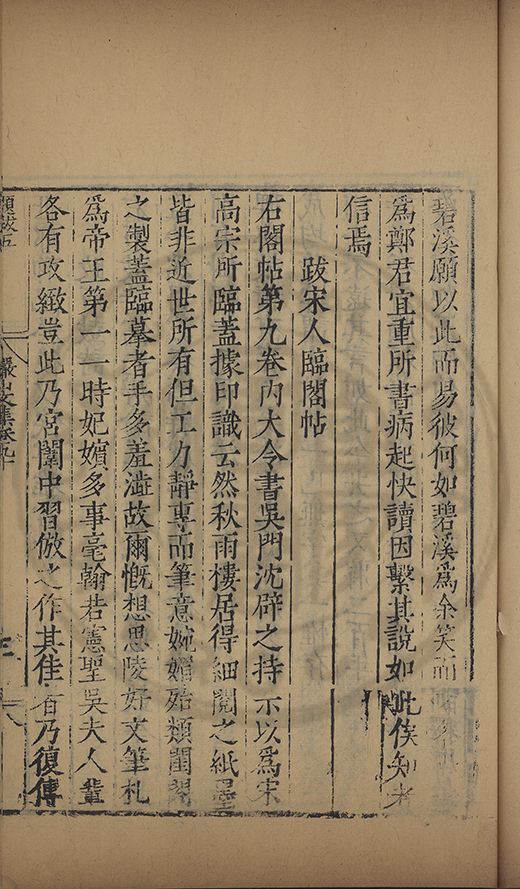 碧溪願以此而易彼何如碧溪爲余笑而
爲鄭君宜重所書病起快讀因繫其說如此俟知者
信焉
跋宋人臨閣帖
右閣帖第九卷內大令書吳門沈辟之持示以爲宋
高宗所臨蓋據印識云然秋雨樓居得細閱之紙墨
皆非近世所有但工力靜專而筆意婉媚殆類閨閤
之製蓋臨摹者手多羞澁故爾慨想思陵好文筆札
爲帝王第一一時妃嬪多事毫翰若憲聖吳夫人輩
各有攻緻豈此乃宮闈中習倣之作其佳者乃復傳
題跋五
儼山文集卷九十